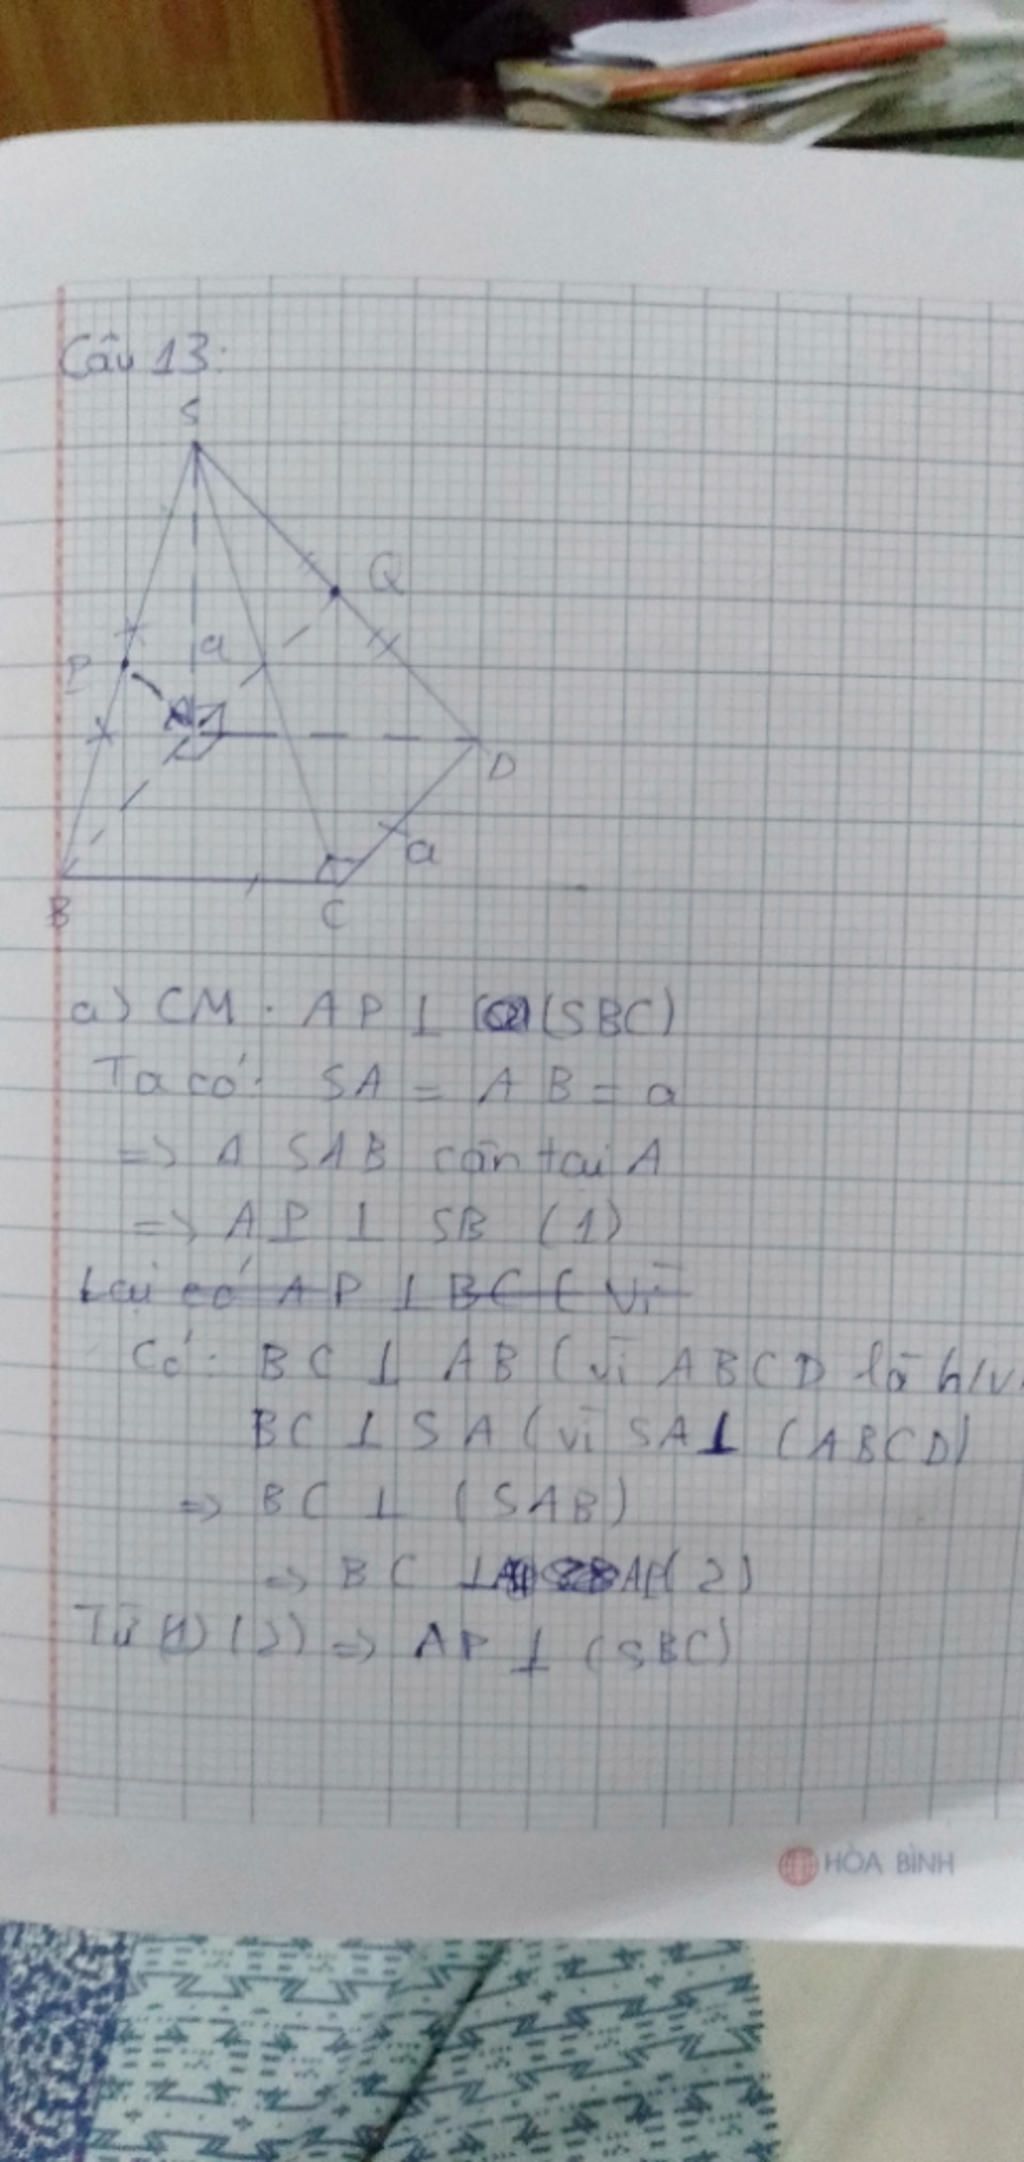 Câu 13:
S
Q
P
a
A
D
a
B
C
a) CM: AP ⊥ (SBC)
Ta có: SA = AB = a
=> Δ SAB cân tại A
=> AP ⊥ SB (1)
Lại có AP ⊥ BC ( vì
Có: BC ⊥ AB ( vì ABCD là h/v
BC ⊥ SA ( vì SA ⊥ (ABCD)
=> BC ⊥ (SAB)
=> BC ⊥ AP (2)
Từ (1) (2) => AP ⊥ (SBC)
HÒA BÌNH